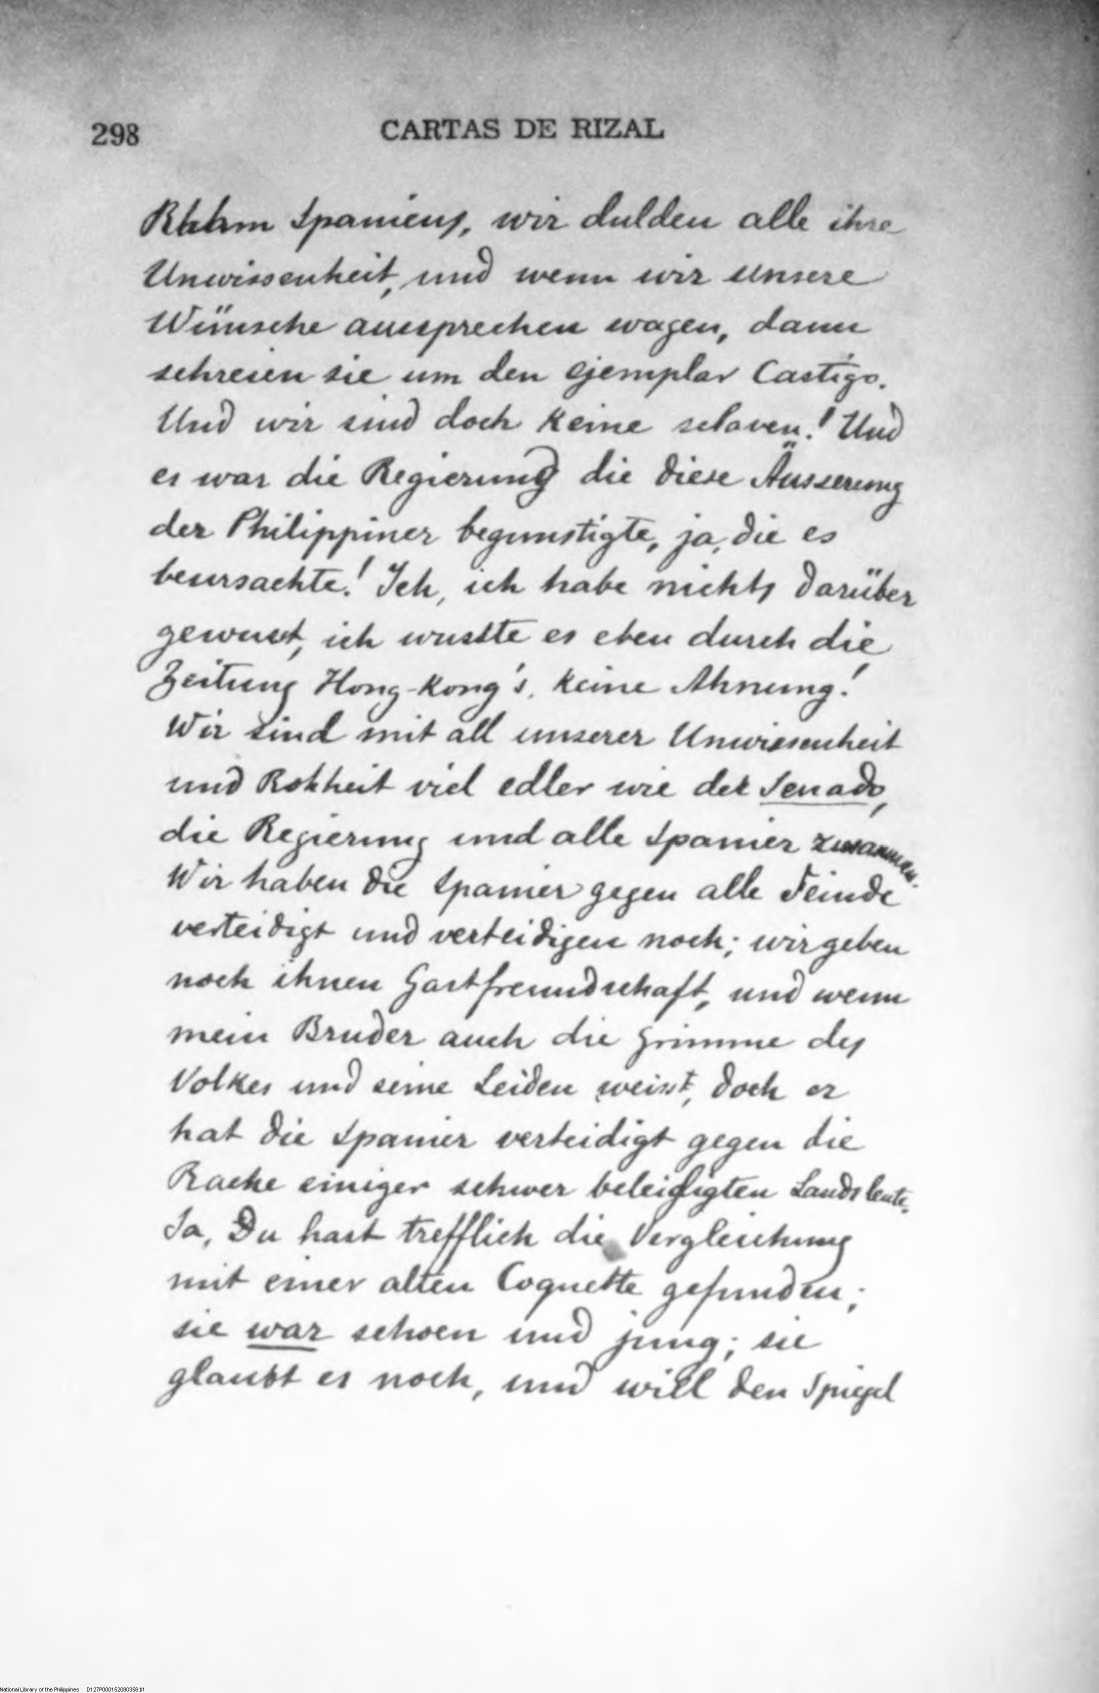 298 CARTAS DE RIZAL
Ruhm Spaniens, wir dulden alle ihre
Unwissenheit, und wenn wir unsere
Wünsche aussprechen wagen, dann
schreien sie um den ejemplar Castigo.
Und wir sind doch keine sclaven! Und
es war die Regierung die diese Äusserung
der Philippiner begunstigte, ja, die es
beursachte! Ich, ich habe nichts darüber
gewusst, ich wusste es eben durch die
Zeitung Hong-Kong's, keine Ahnung!
Wir sind mit all unserer Unwissenheit
und Rohheit viel edler wie der Senado,
die Regierung und alle Spanier zusammen.
Wir haben die Spanier gegen alle Feinde
verteidigt und verteidigen noch; wir geben
noch ihnen Gastfreundschaft, und wenn
mein Bruder auch die Grimme des
Volkes und seine Leiden weisst, doch er
hat die Spanier verteidigt gegen die
Rache einiger schwer beleidigten Landsleute.
Ja, Du hast trefflich die Vergleichung
mit einer alten Coquette gefunden;
sie war schoen und jung; sie
glaubt es noch, und will den Spiegel
National Library of the Philippines